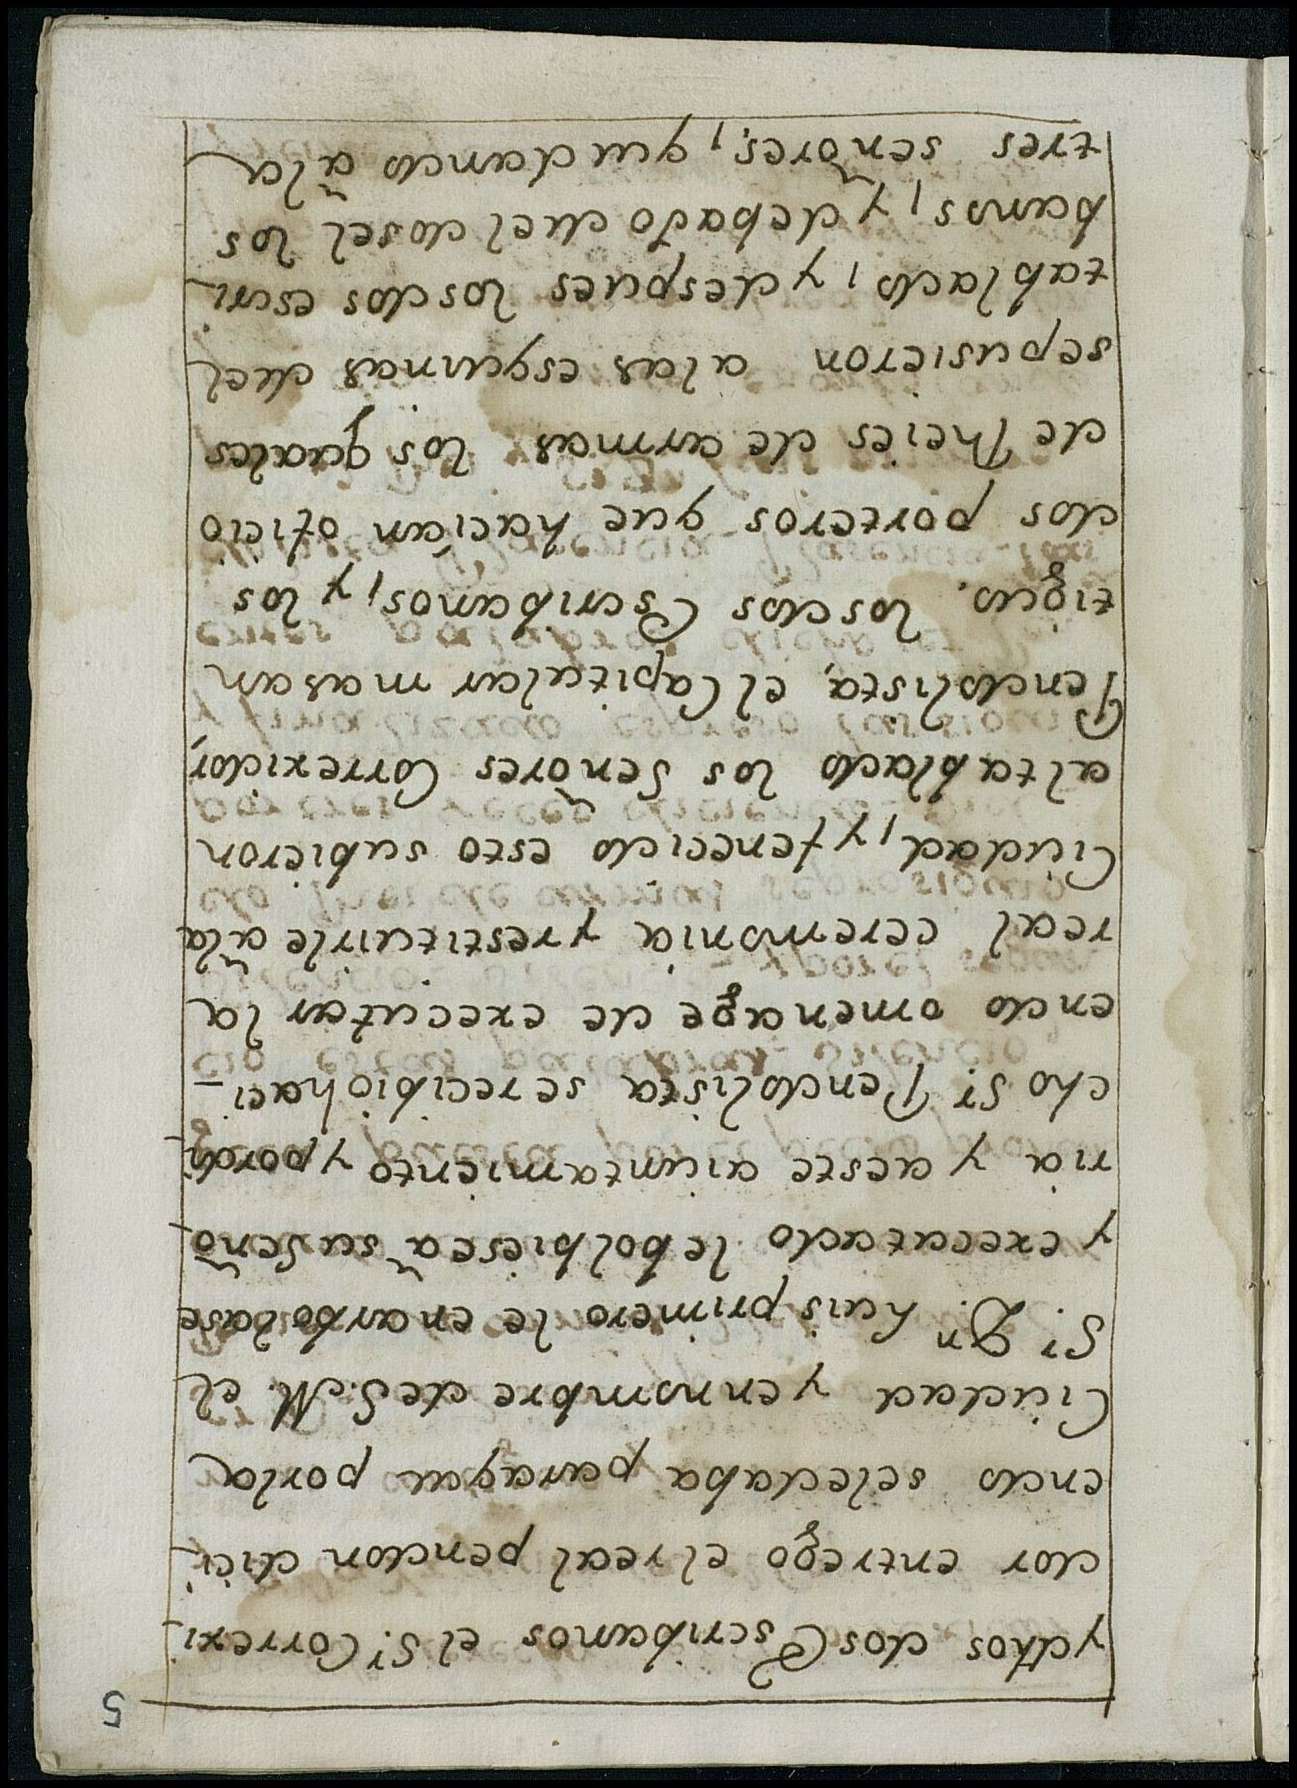 5
ydhos dos Escribanos el Sr. Correxi-
dor entrego el real pendon dici-
endo seledaba paraque porla
Ciudad yennombre de S. M. el
Sr. Dn. Luis primero le enarbolase
y executado lebolbiese à su Seño-
ria y aeste aiuntamiento y pordi-
cho Sr. Pendolista serecibio haci-
endo omenage de executar la
real ceremonia yrestituirle àla
Ciudad, y fenecido esto subieron
altablado los Señores Correxidor,
Pendolista, el Capitular masan
tiguo, losdos Escribanos, y los
dos porteros que hacian oficio
de Rheies de armas los quales
sepusieron alas esquinas del
tablado, y despues losdos escri-
banos, y debajo del dosel los
tres señores, quedando àla